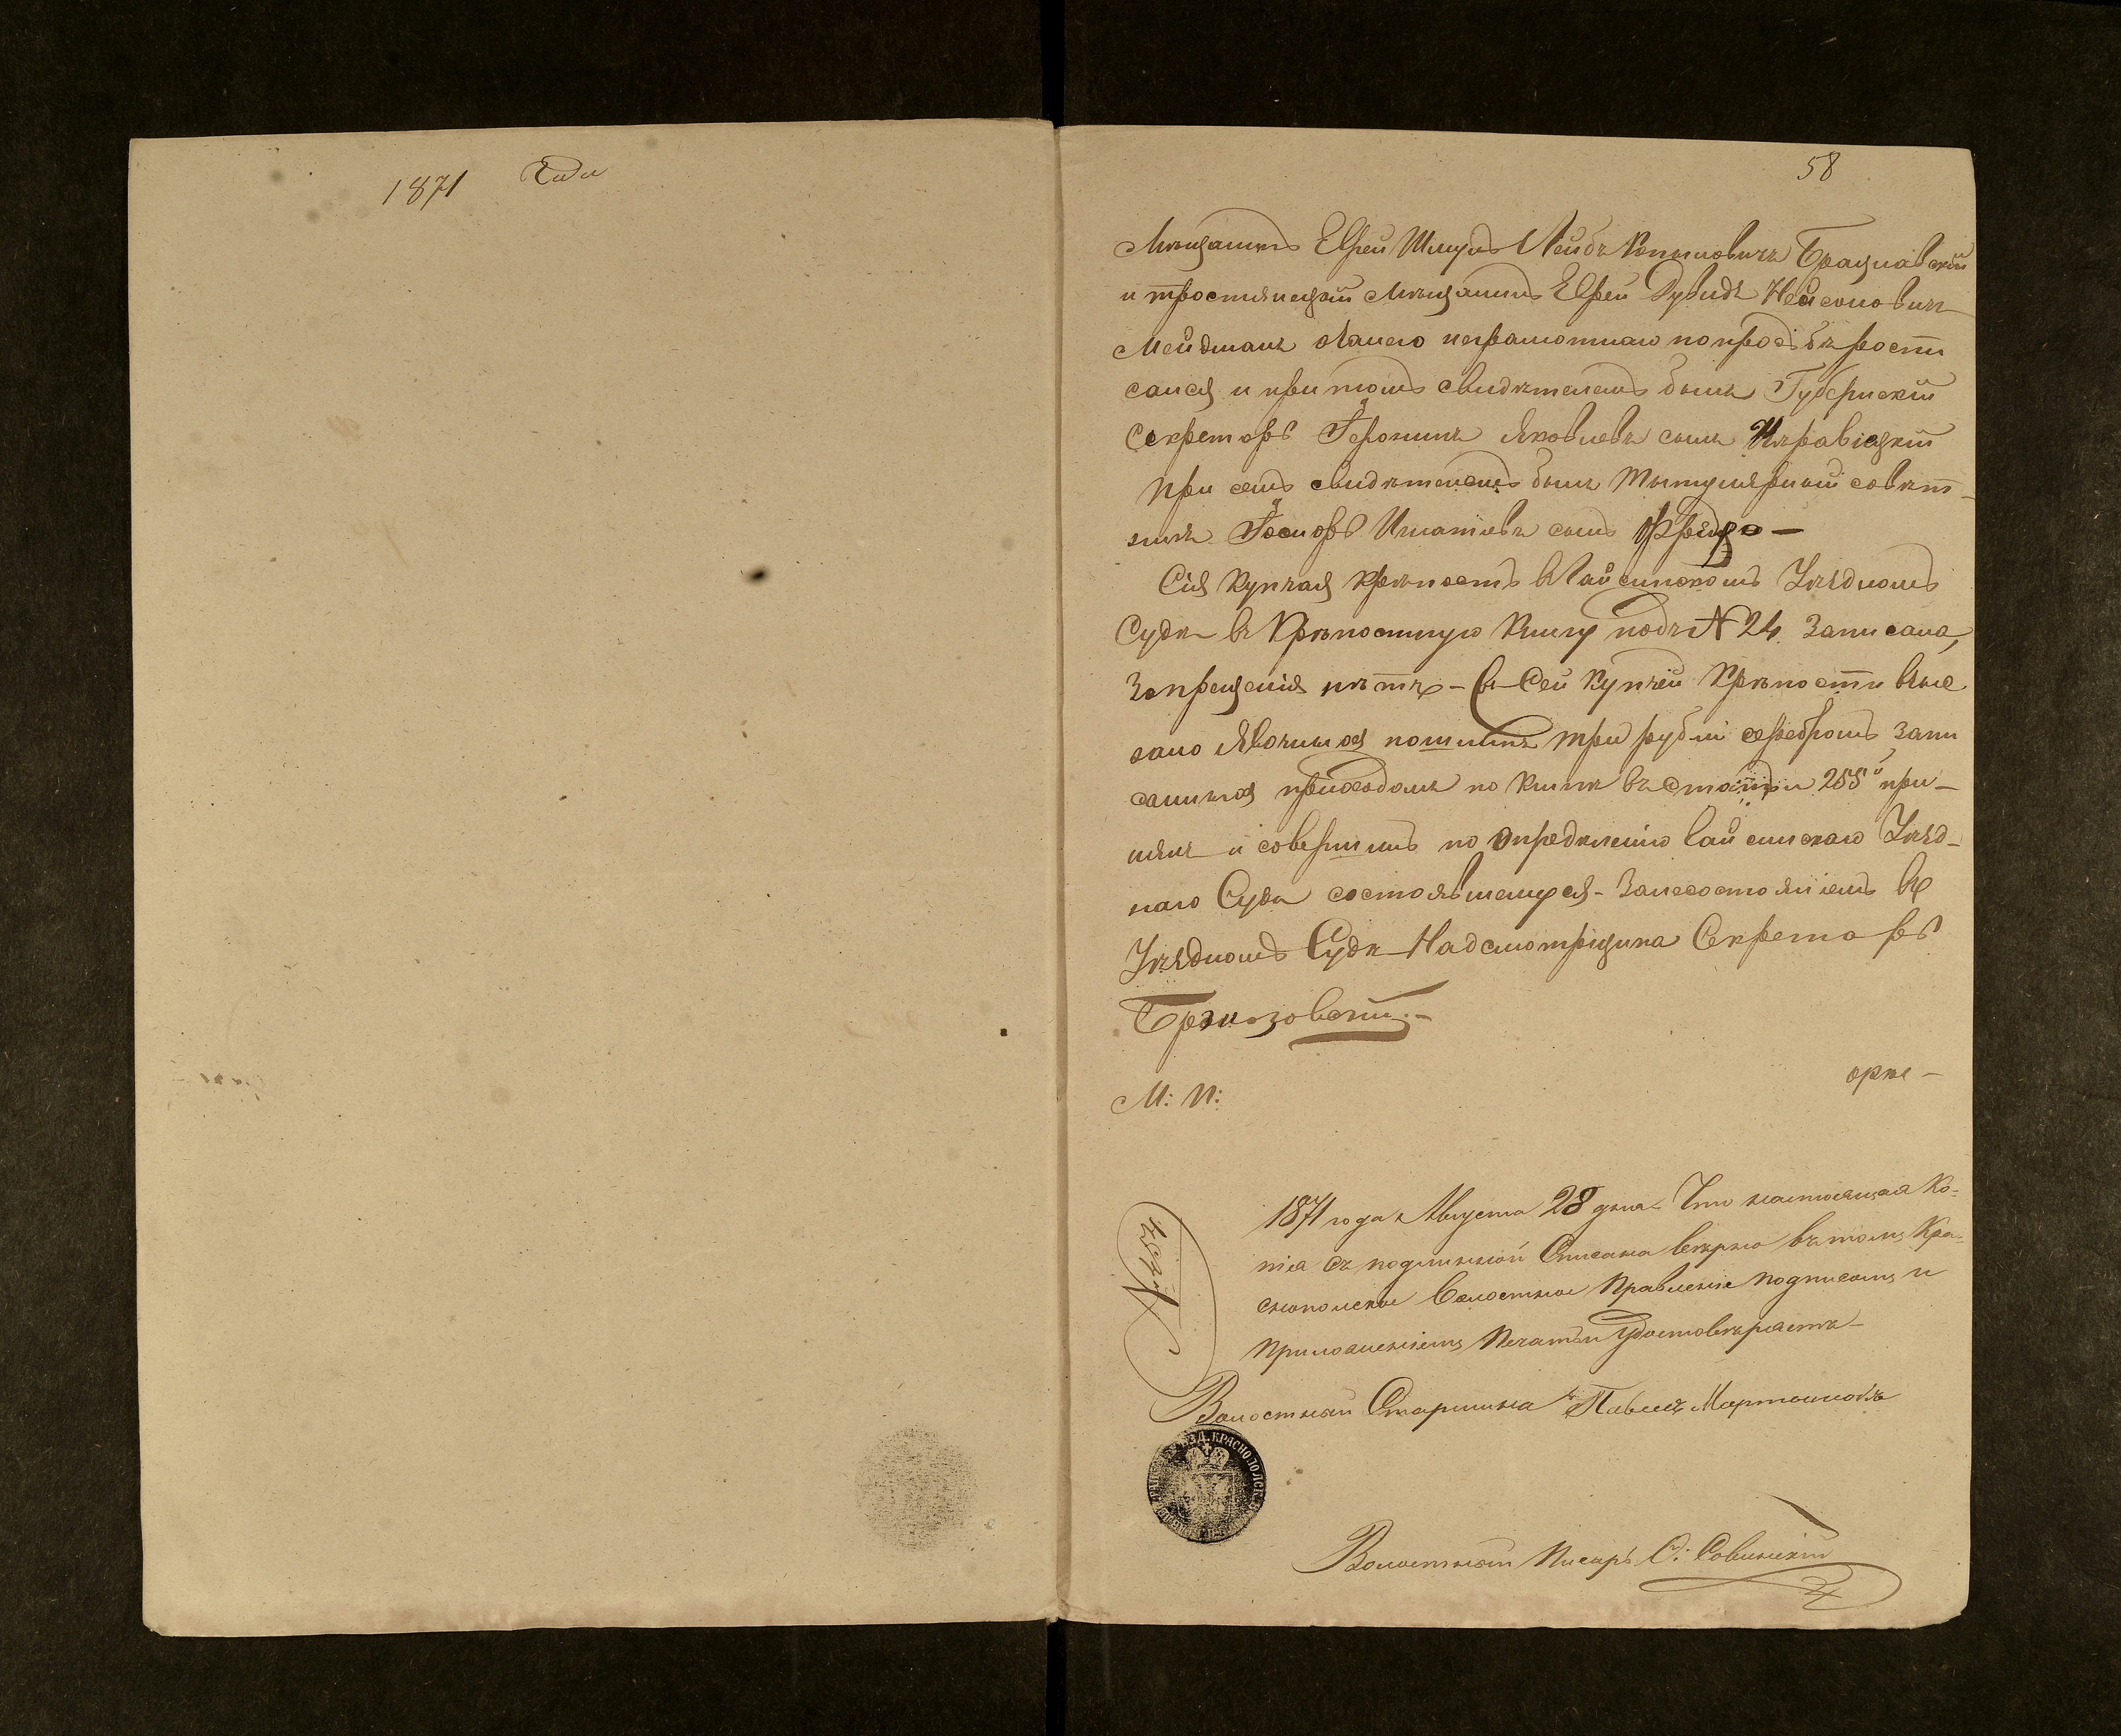 1871 Года
58
Мѣщанинъ Еврей Шмуль Лейбъ Копыловичъ Брацлавскій
и тростянецкій мѣщанинъ Еврей Дувидъ Нейсоновичъ
Мейдманъ неграмотнаго по просьбѣ роспи
сался и при томъ свидѣтелемъ былъ Губернскій
Секретарь Іеронимъ Яковлевъ сынъ
При семъ свидѣтелемъ былъ Тытулярный совѣт-
никъ Игнатіевъ сынъ
Сія Купчая Крѣпость въ Гайсинскомъ Уѣздномъ
Судѣ въ Крѣпостную Книгу подъ N 24 Записана,
Запрещенія нѣтъ – въ Сей Купчей Крѣпости взыс
кано Явочныхъ пошлинъ три рубли серебромъ Запи
санныхъ приходомъ по Книгѣ въ статьи 255й при-
нялъ и совершилъ по Опредѣленію Гайсинскаго Уѣзд-
наго Суда состоявшемуся – За несостояніемъ въ
Уѣздномъ Судѣ Надсмотрщика Секретарь
М: П:
1871 года Августа 28 дня Что настоящая Ко-
пія съ подлинной Списана вѣрно въ томъ Кра-
снопольское Волостное Правленіе подписомъ и
Приложеніемъ Печати Удостовѣряетъ –
Волостный Старшина Павелъ
ѢЗД. КРАСНОПОЛСК
Волостный Писарь С: Савинскій